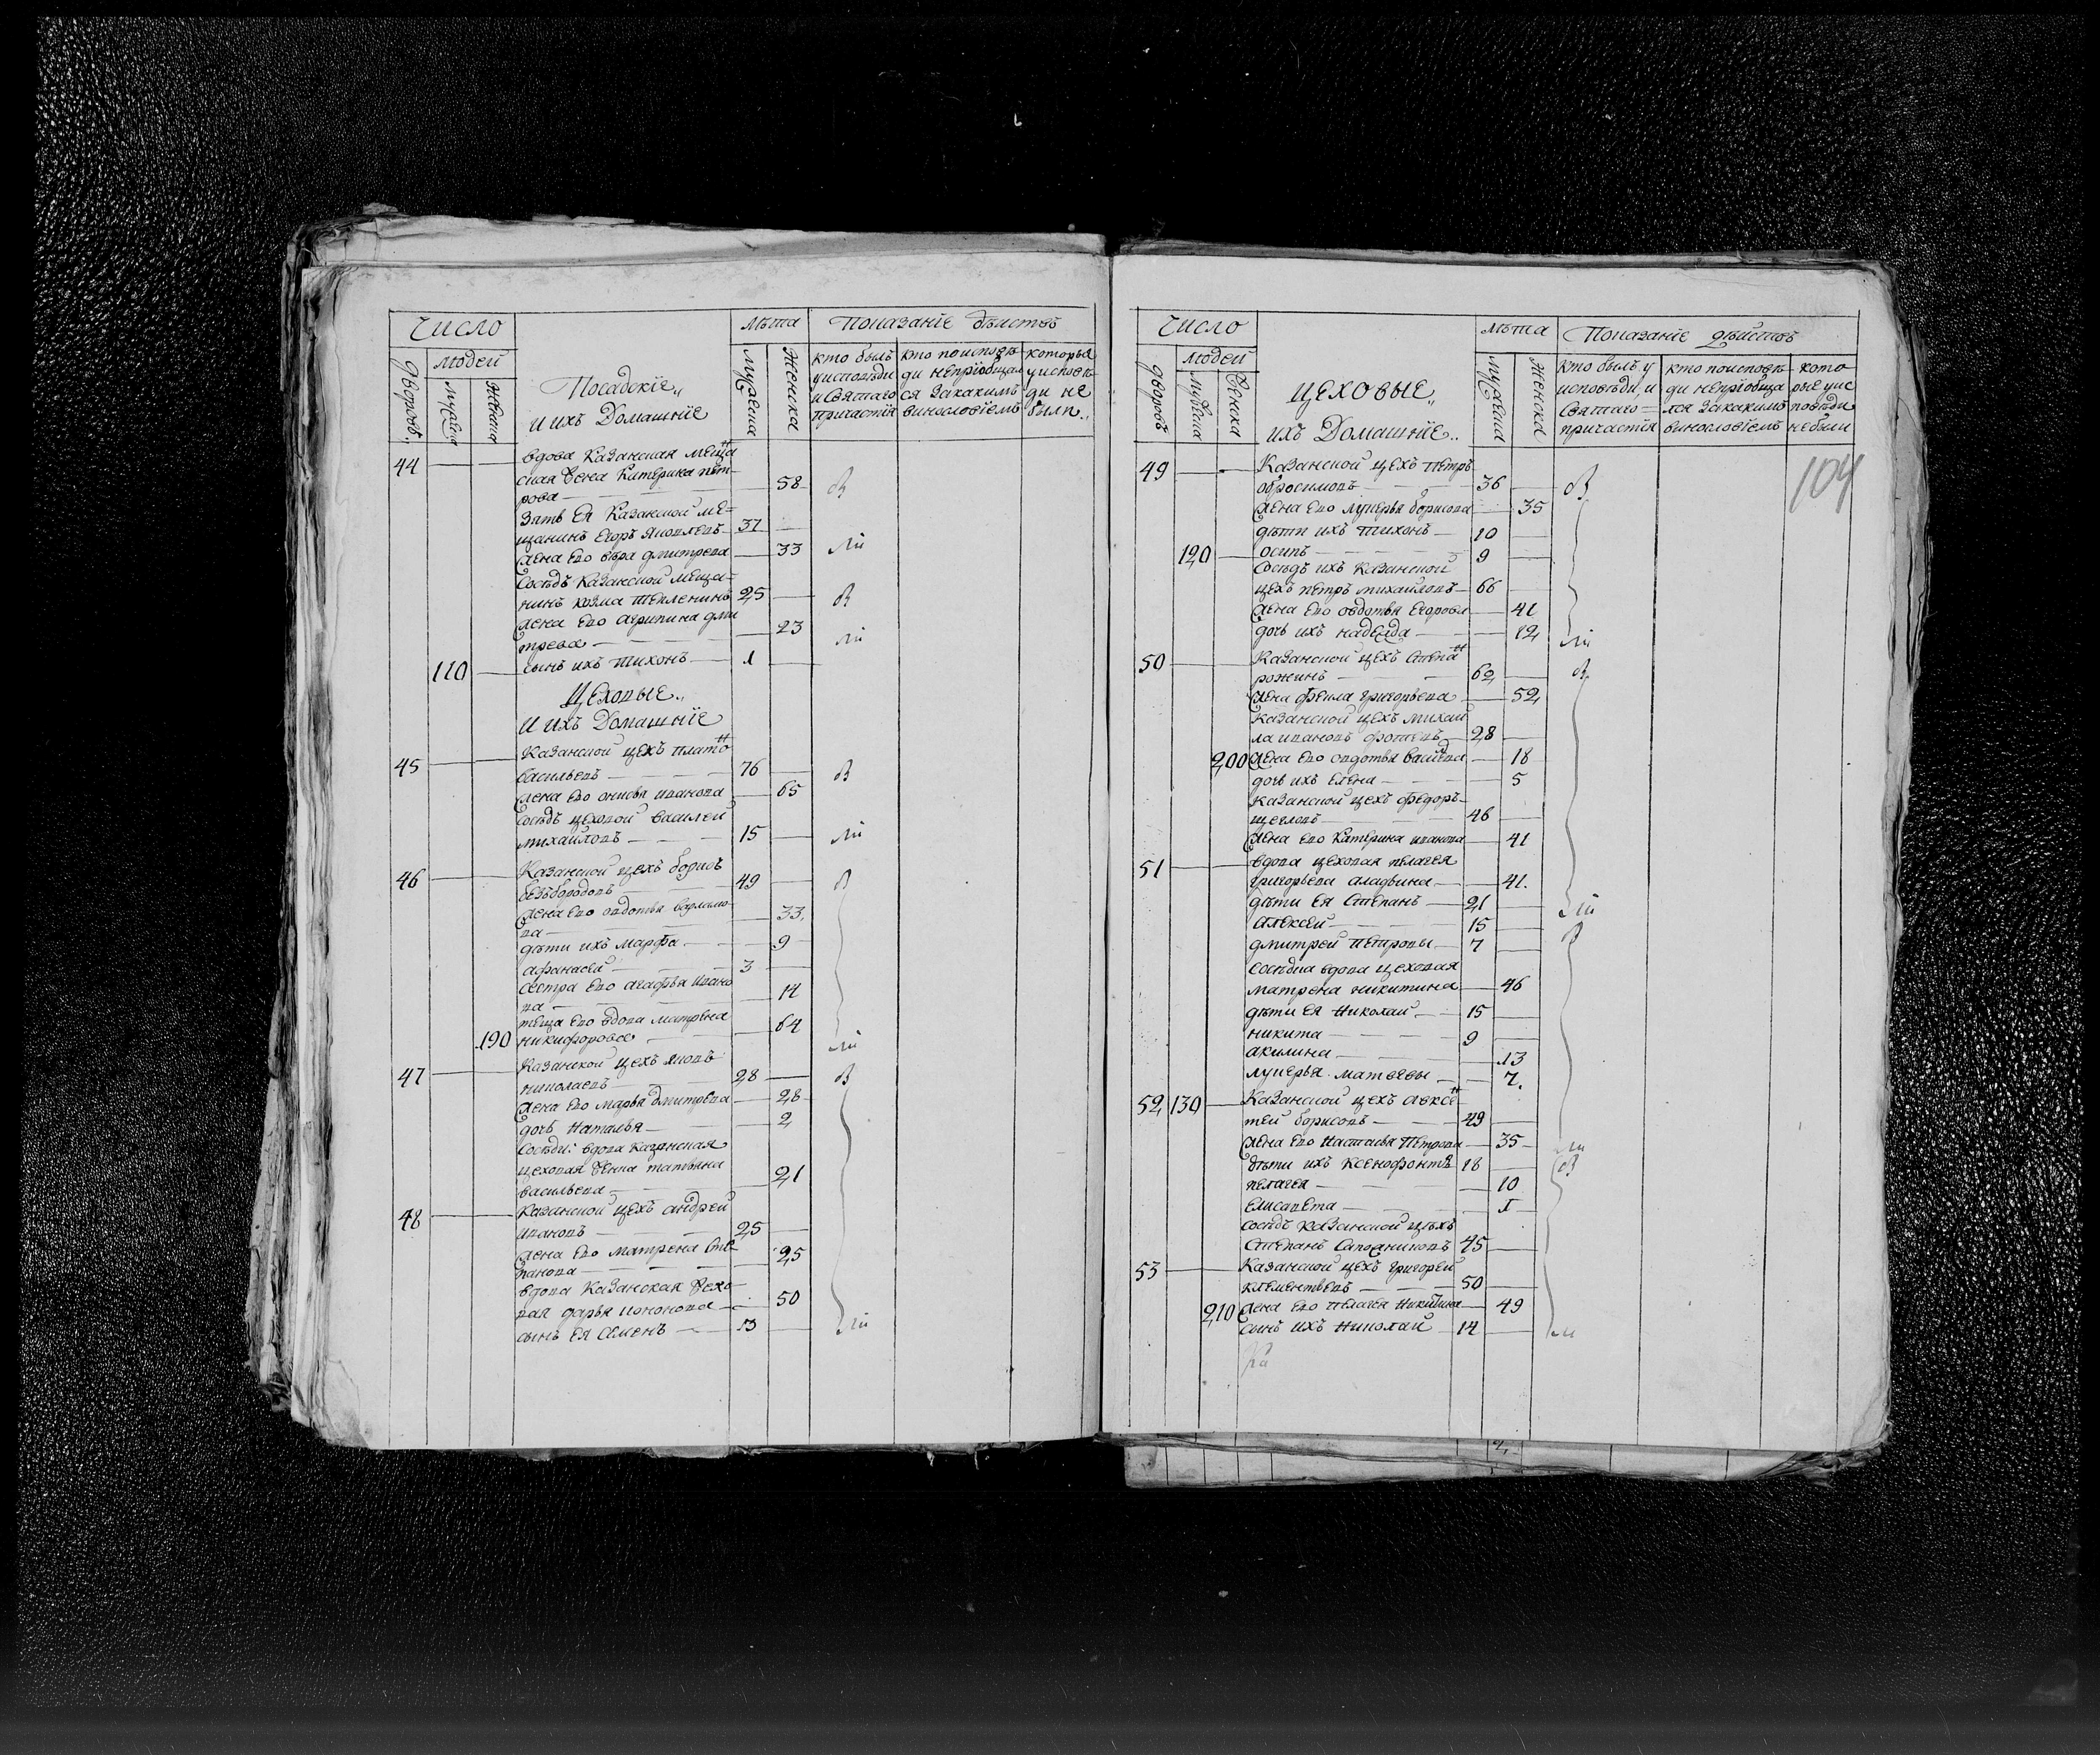 Число
Лѣта
Показанїе дѣиствъ
людей
дворовъ.
мужеска
женска
Посадскїе
и ихъ Домашнїе
мужеска
женска
кто былъ у исповѣди и святаго причастїя
кто по исповѣди не прїобщался за какимъ винословїемъ
которые у исповѣди не были
44 вдова Казанская меща
ская жена Катерина пет-
рова 58 В
Зять Ея Казанской ме-
щанинъ Егоръ Яковлевъ 37
жена Ево вѣра дмитрева 33
Сосѣдъ Казанской меща-
нинъ козма тепленинъ 25 В
жена Ево агрипина дми
трева 23
110 сынъ ихъ тихонъ 1
Цеховые
И ихъ Домашнїе
45 Казанской цехъ плато н
васильевъ 76 В
жена Ево онисья иванова 65
Сосѣдъ цеховой василей
михайловъ 15
46 Казанской цехъ борисъ
безбородовъ 49 В
жена Ево овдотья варламо
ва 33
дѣти ихъ марфа 9
афанасей 3
сестра Ево агафья ивано
ва 14
теща Ево вдова матрена
190 никифорова 64
47 Казанской цехъ яковъ
николаевъ 28 В
жена Ево марья дмитрева 28
дочь наталья 2
сосѣди: вдова казанская
цеховая жена татьяна
васильева 21
48 Казанской цехъ андрей
ивановъ 25
жена Ево матрена сте-
панова 25
вдова казанская цехо
вая дарья 50
сынъ ея семенъ 13
Число
лѣта
Показанїе дѣйствъ
людей
дворовъ
мужеска
женска
цеховые
ихъ Домашнїе
мужеска
женска
кто былъ у исповѣди и святаго причастїя
кто по исповѣди не прїобщался за какимъ винословїемъ
которые у исповѣди не были
104
49 Казанской цехъ петръ
обросимовъ 36 В
жена Ево лукерья борисова 35
дѣти ихъ тихонъ 10
120 осипъ 9
Сосѣдъ ихъ Казанской
цехъ петръ михайловъ 66
жена Ево овдотья Егорова 41
дочь ихъ надежда 12
50 Казанской цехъ степа н
рожинъ 62 В
жена фекла григорьева 52
казанской цехъ михай
ла ивановъ 28
200 жена Ево овдотья васильева 18
дочь ихъ елена 5
казанской цехъ федоръ
щегловъ 46
жена Ево катерина иванова 41
51 вдова цеховая пелагея
григорьева аладьина 41.
дѣти Ея Степанъ 21
Алексей 15 В
дмитрей петровы 7
сосѣдка вдова цеховая
матрена никитина 46
дѣти ея николай 15
никита 9
акилина 13
лукерья матвевы 7.
52 130 Казанской цехъ
борисовъ 49
жена Ево настасья петрова 35
дѣти ихъ ксенофонтъ 18 В
пелагея 10
елисавета 1
сосѣдъ казанской цехъ
степанъ сапожниковъ 45
53 Казанской цехъ григорей
клементьевъ 50
210 жена Ево пелагея никитина 49
сынъ ихъ николай 14
Ка